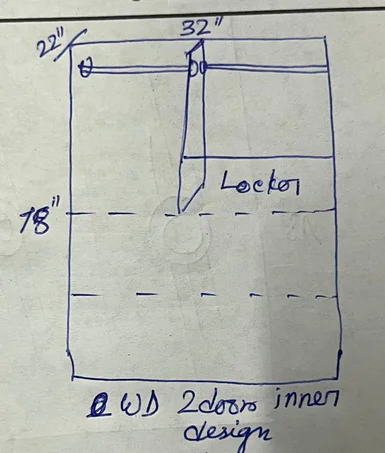 32"
22"
Locker
78"
WD 2door inner
design